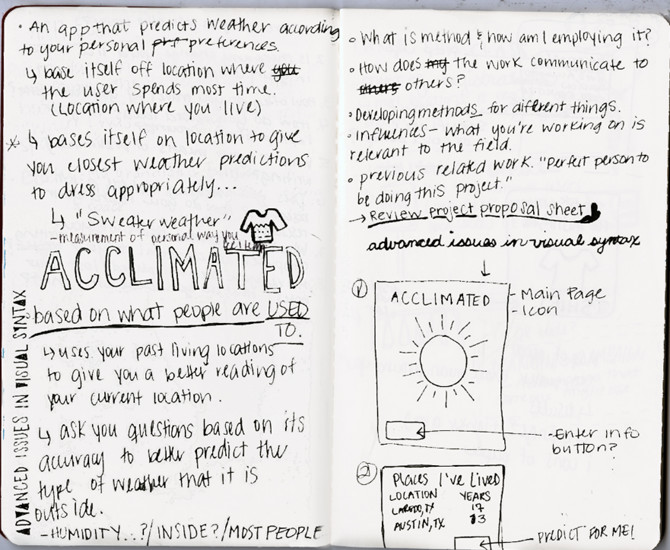 · An app that predicts weather according
to your personal preferences.
↳ base itself off location where
the user spends most time.
(Location where you live)
* ↳ bases itself on location to give
you closest weather predictions
to dress appropriately...
↳ "Sweater weather"
- measurement of personal way you
ACCLIMATED
based on what people are USED
TO.
↳ uses your past living locations
to give you a better reading of
your current location.
↳ ask you questions based on its
accuracy to better predict the
type of weather that it is
outside.
- HUMIDITY...?/INSIDE?/MOST PEOPLE
ADVANCED ISSUES IN VISUAL SYNTAX
· What is method & how am I employing it?
· How does the work communicate to
others?
· Developing methods for different things.
· influences - what you're working on is
relevant to the field.
· previous related work. "perfect person to
be doing this project."
→ Review project proposal sheet
advanced issues in visual syntax
1
ACCLIMATED
- Main Page
- Icon
- Enter info
button?
2
Places I've Lived
LOCATION YEARS
LAREDO, TX 17
AUSTIN, TX 3
PREDICT FOR ME!